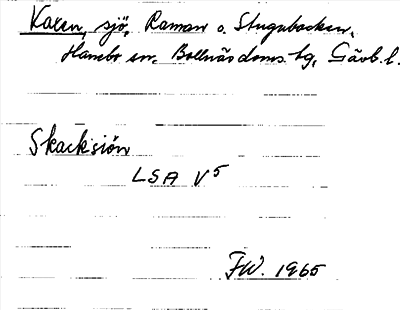 Kaxen, sjö, Raman o. Stugubacken,
Hanebo sn. Bollnäs doms. hg, Gävl. l.
Skacksiön
LSA V5
FW. 1965